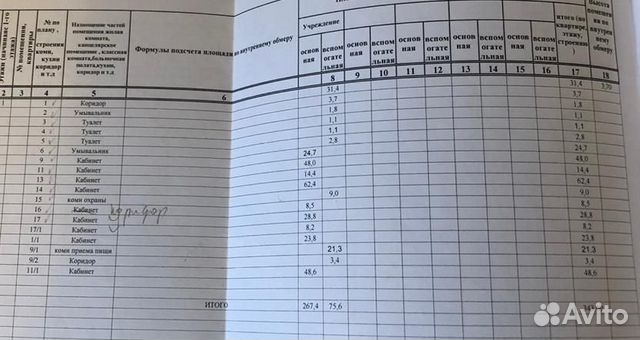 Этажи (начиная с 1-го этажа)
№ помещения, квартиры
№ по плану, строения комн, кухни коридор и т.д
Назначение частей помещения жилая комната, канцелярское помещение, классная комната, больничная палата, кухня, коридор и т.д
Формулы подсчета площади по внутреннему обмеру
Учреждение
основная вспомогательная основная вспомогательная основная вспомогательная основная вспомогательная основная вспомогательная
итого (по квартире, этажу, строению
высота помещения по внутреннему обмеру
2 3 4 5 6 8 9 10 11 12 13 14 15 16 17 18
1 1 Коридор 31,4 31,4 3,70
2 Умывальник 3,7 3,7
3 Туалет 1,8 1,8
4 Туалет 1,1 1,1
5 Туалет 1,1 1,1
6 Умывальник 2,8 2,8
9 Кабинет 24,7 24,7
11 Кабинет 48,0 48,0
13 Кабинет 14,4 14,4
14 Кабинет 62,4 62,4
15 комн охраны 9,0 9,0
16 Кабинет коридор 8,5 8,5
17 Кабинет 28,8 28,8
17/1 Кабинет 8,2 8,2
1/1 Кабинет 23,8 23,8
9/1 комн приема пищи 21,3 21,3
9/2 Коридор 3,4 3,4
11/1 Кабинет 48,6 48,6
ИТОГО 267,4 75,6
Avito